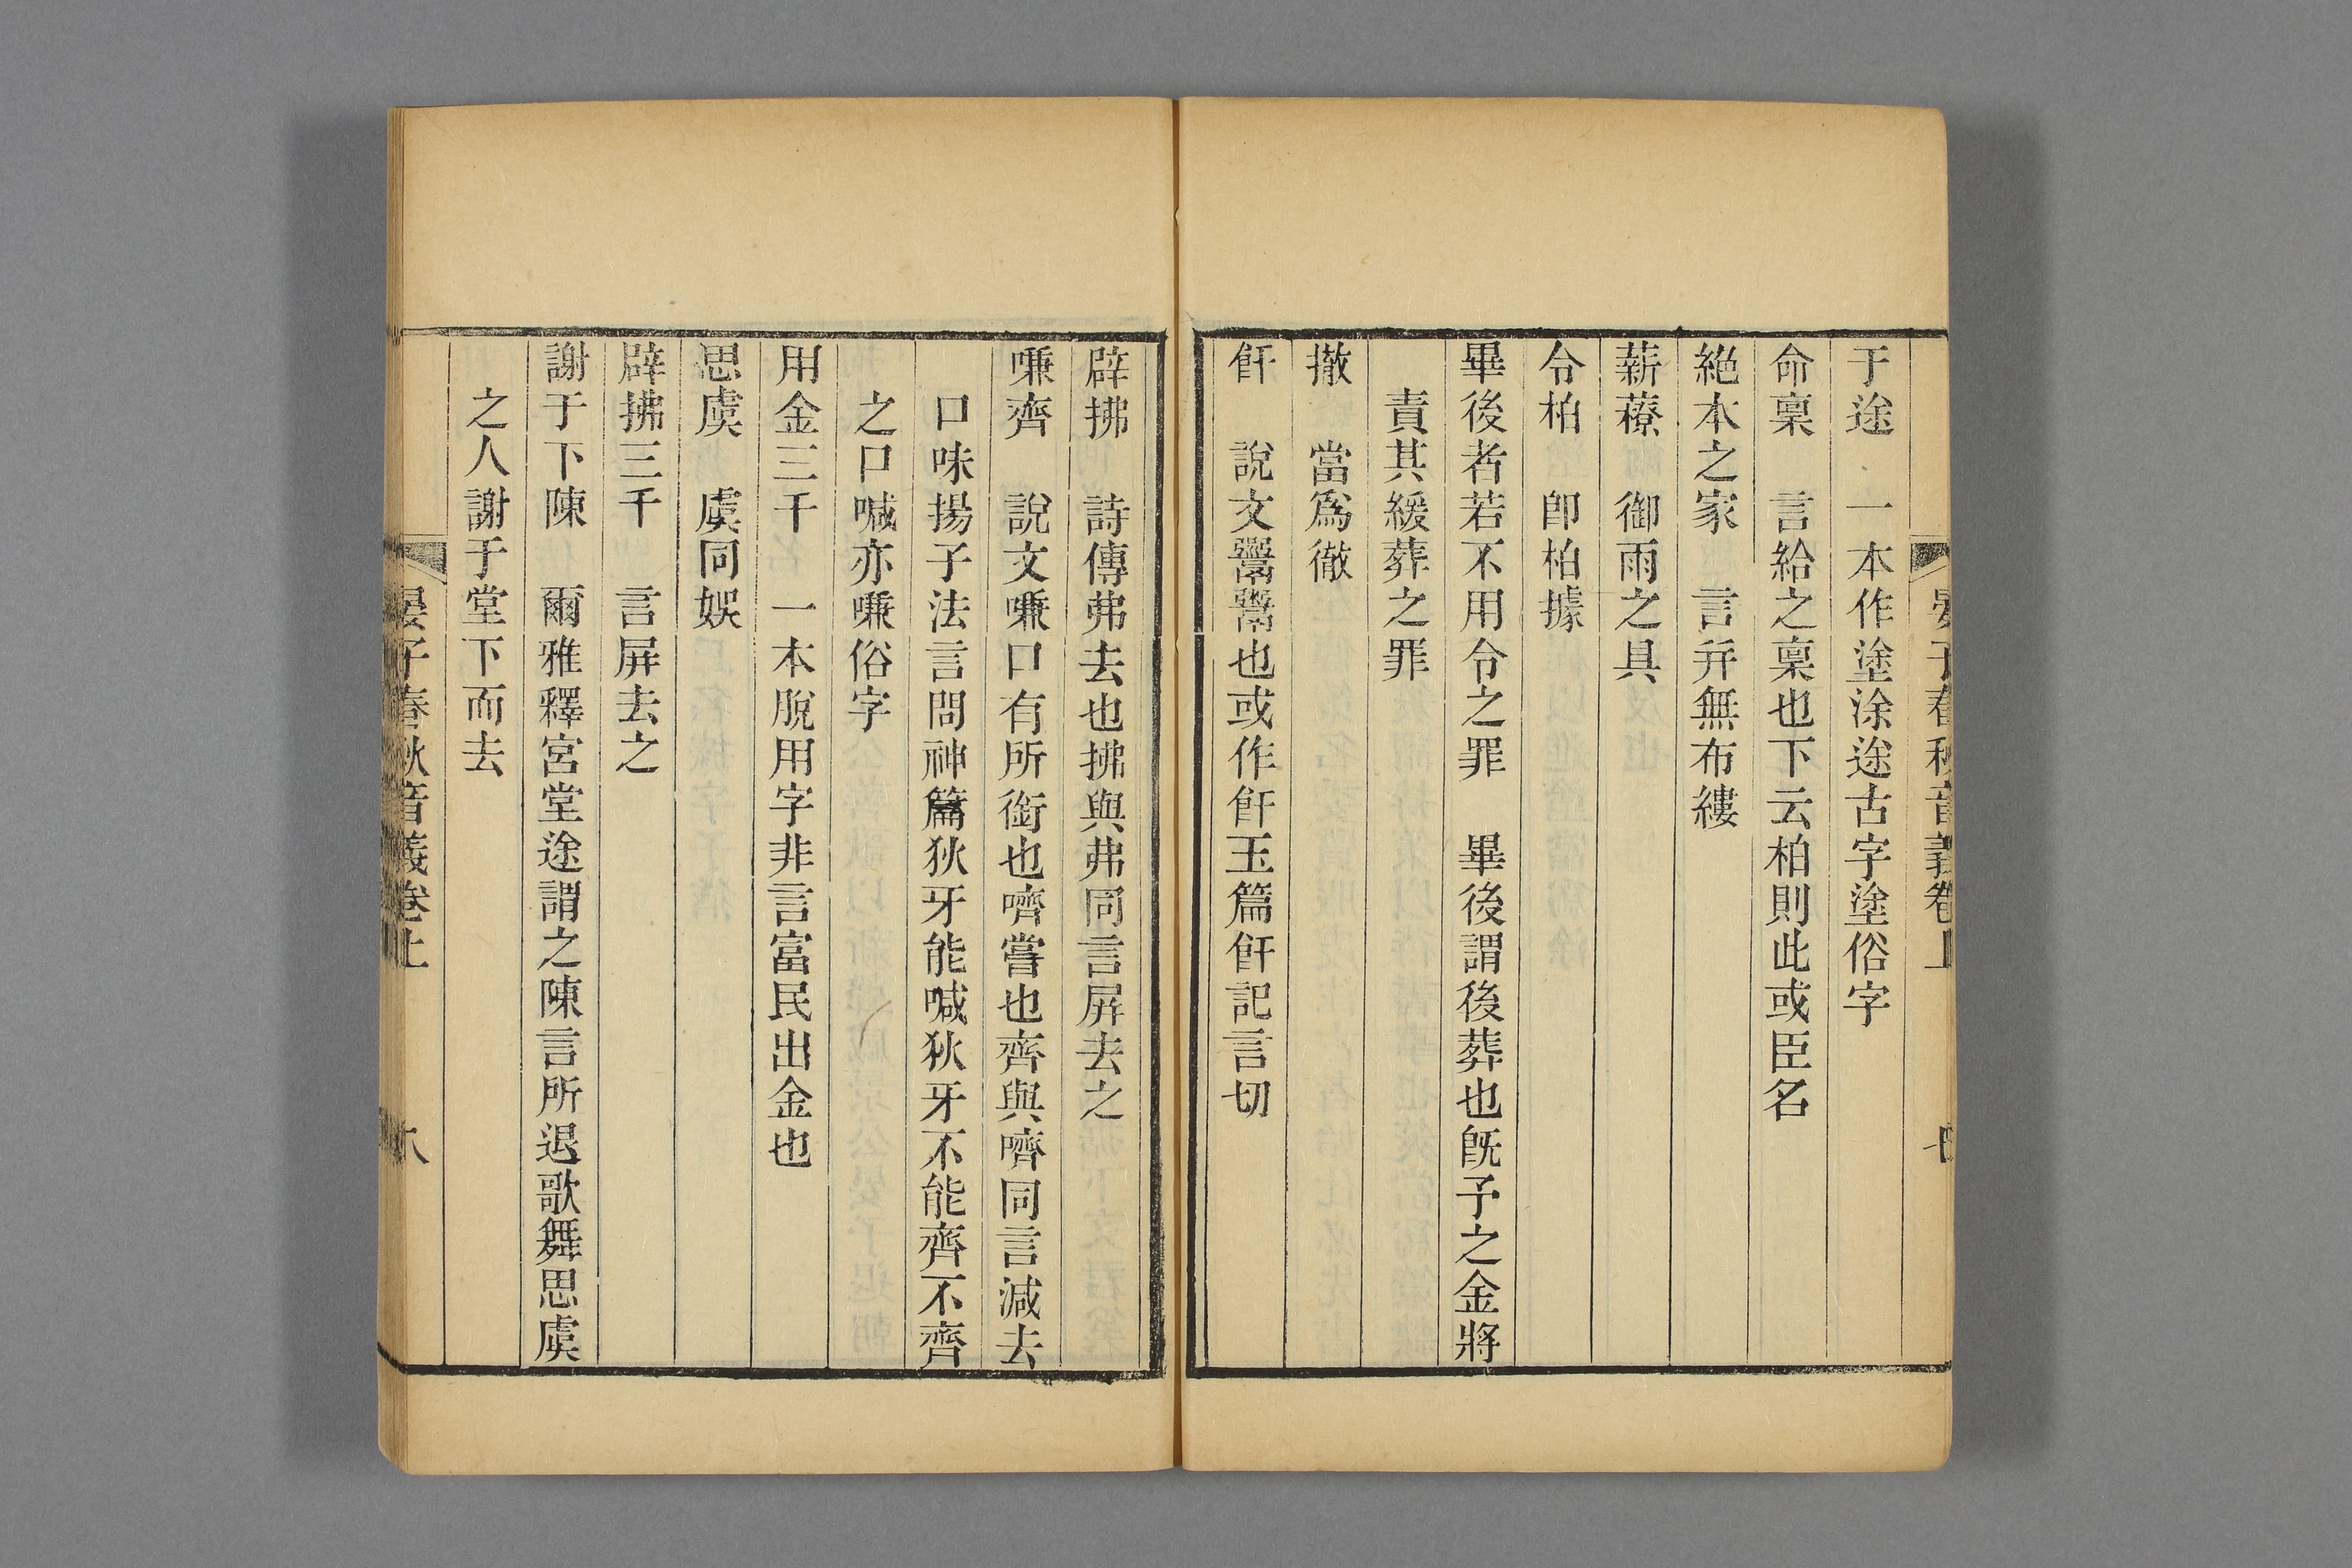 晏子春秋音義卷上 七
于途　一本作塗涂途古字塗俗字
命稟　言給之稟也下云柏則此或臣名
絕本之家　言弁無布縷
薪藔　御雨之具
令柏　卽柏據
畢後者若不用令之罪　畢後謂後葬也旣予之金將
責其緩葬之罪
撤　當爲徹
飦　說文鬻鬻也或作飦玉篇飦記言切
辟拂　詩傳茀去也拂與茀同言屏去之
嗛齊　說文嗛口有所銜也嚌嘗也齊與嚌同言減去
口味揚子法言問神篇狄牙能喊狄牙不能齊不齊
之口喊亦嗛俗字
用金三千　一本脫用字非言富民出金也
思虞　虞同娛
辟拂三千　言屏去之
謝于下陳　爾雅釋宮堂途謂之陳言所退歌舞思虞
之人謝于堂下而去
晏子春秋音義卷上 八